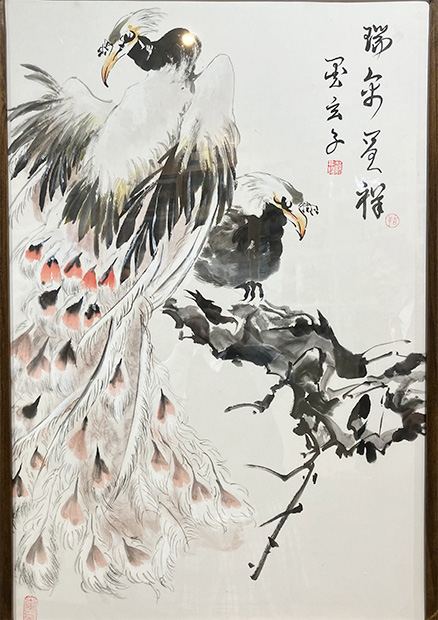 瑞禽呈祥
墨玄子